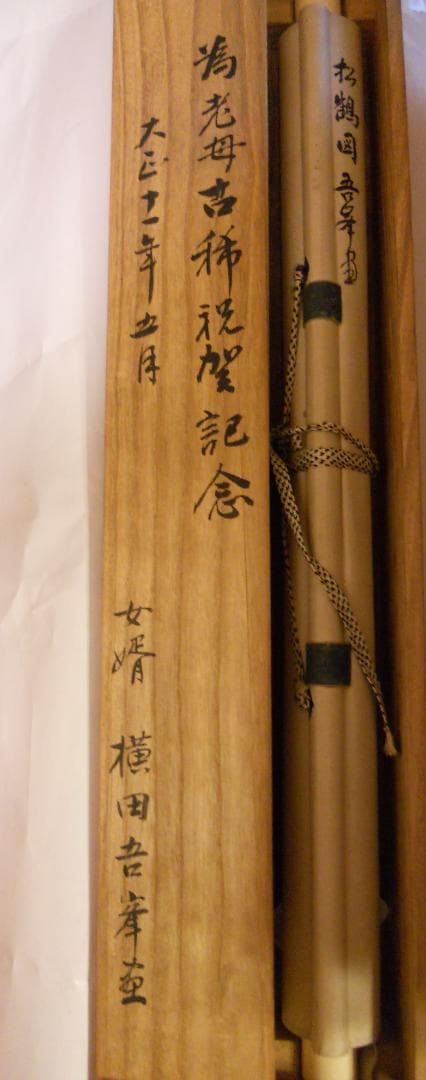 松鶴図吾峯画
為老母古稀祝賀記念
大正十一年五月
女婿 横田吾峯画